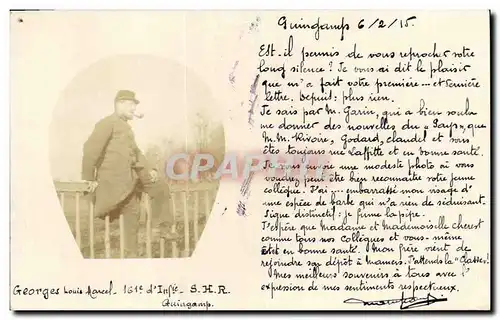 Guingamp 6/2/15
Est-il permis de vous reprocher votre
long silence ? Je vous ai dit le plaisir
que m'a fait votre première... et dernière
lettre. Depuis: plus rien.
Je sais par M. Garin, qui a bien voulu
me donner des nouvelles du que
M.M. Rivoire, Godard, Claudel et vous
êtes toujours rue Laffitte et en bonne santé.
Je vous envoie une modeste photo où vous
voudrez peut être bien reconnaître votre jeune
collègue. J'ai embarrassé mon visage d'
une espèce de barbe qui n'a rien de séduisant.
Signe distinctif: je fume la pipe.
J'espère que Madame et Mademoiselle
comme tous nos collègues et vous-même
en bonne santé. Mon frère vient de
rejoindre son dépôt à Mamers. J'attends la "Classe!
Mes meilleurs souvenirs à tous avec l'
expression de mes sentiments respectueux.
Georges Louis Marcel - 161e d'Infie - S.H.R.
Guingamp.
CPARAMA